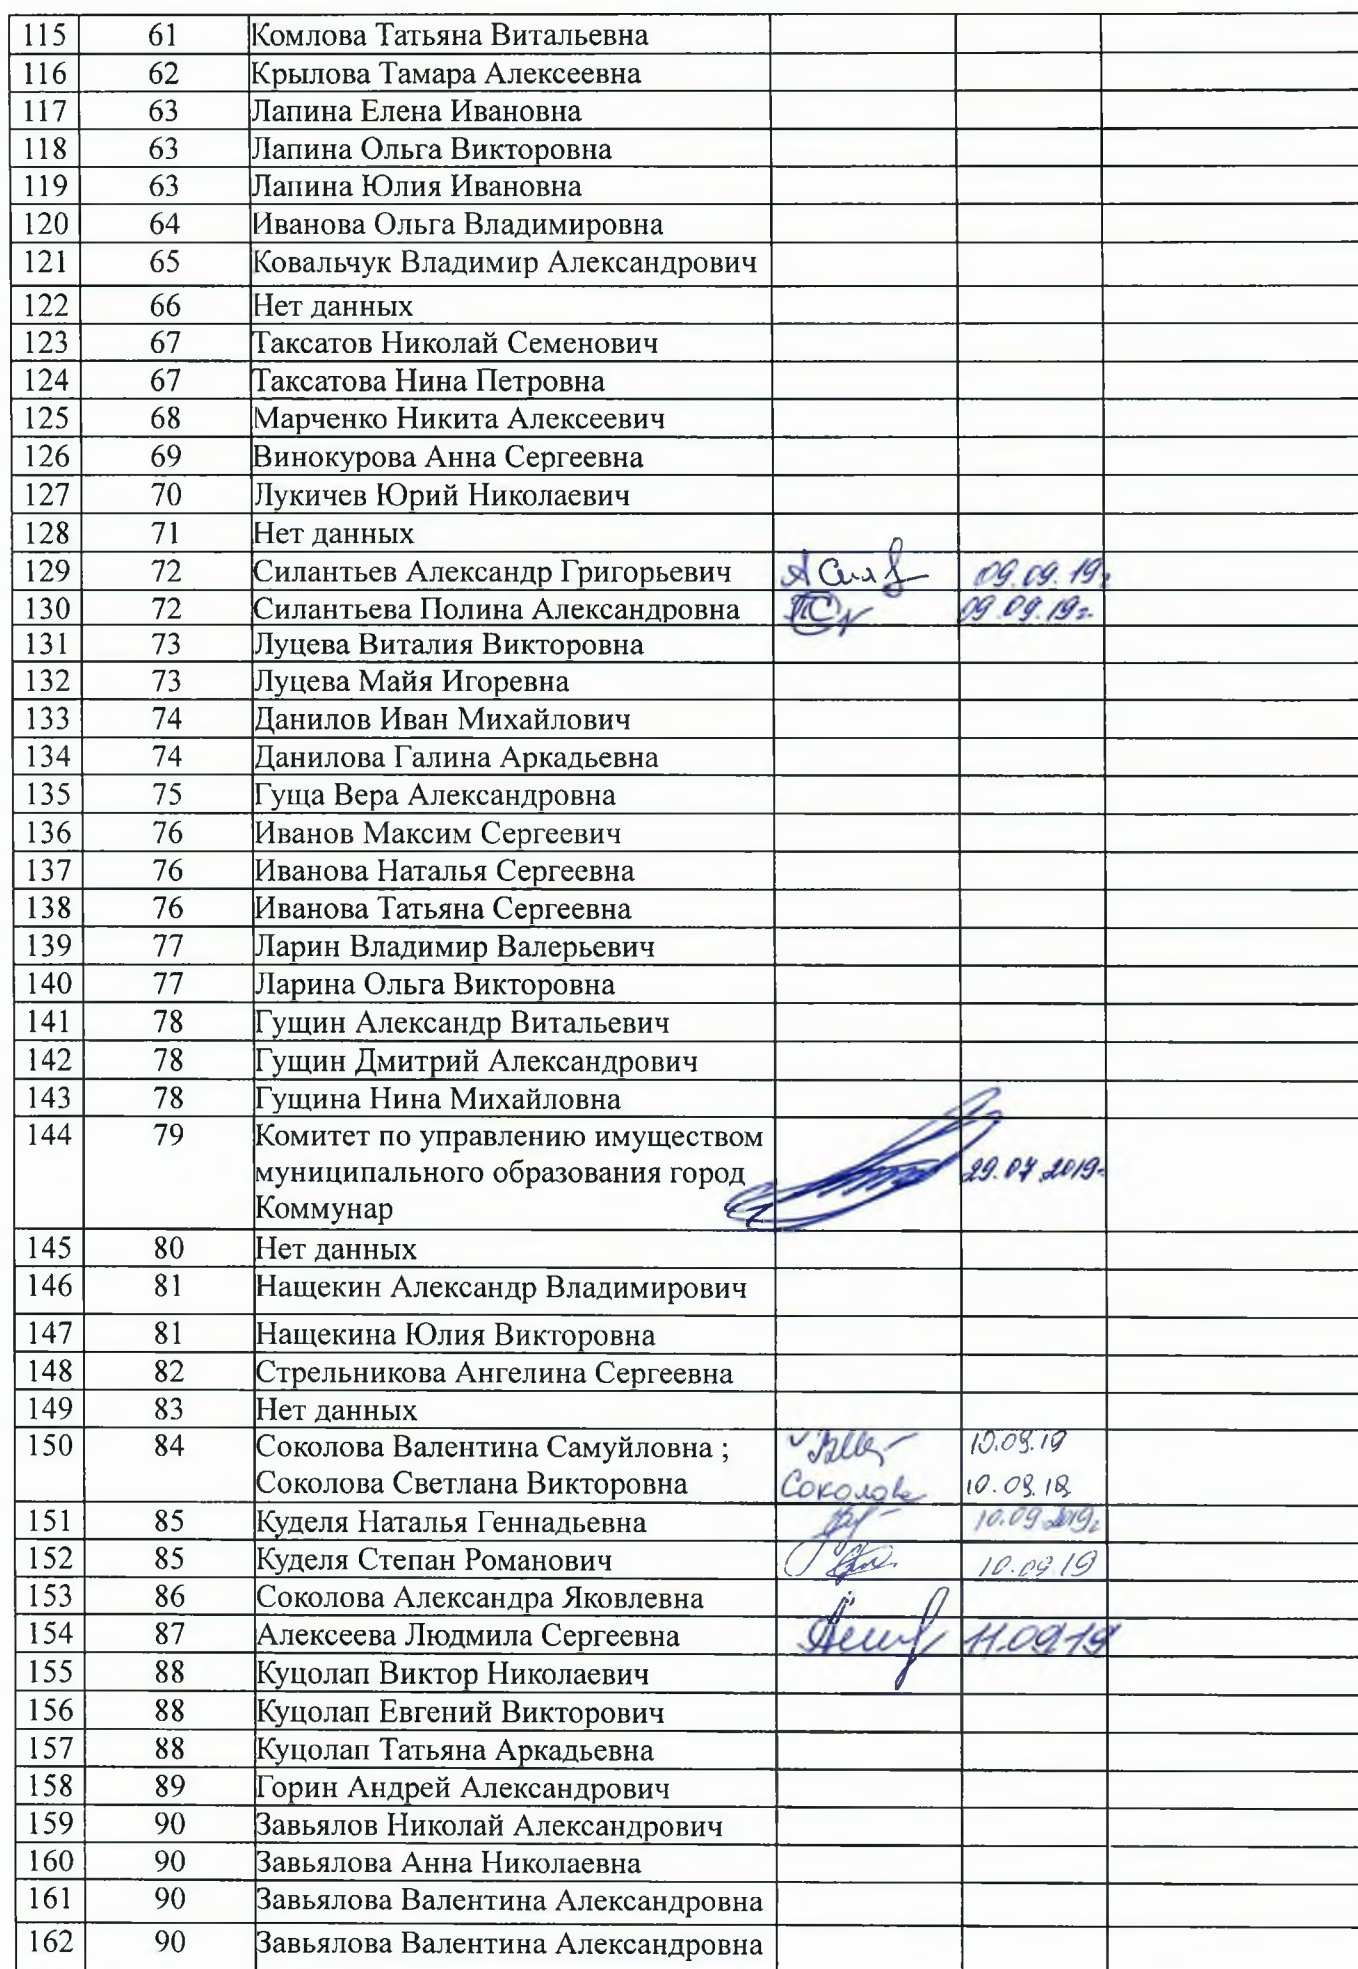 115 61 Комлова Татьяна Витальевна
116 62 Крылова Тамара Алексеевна
117 63 Лапина Елена Ивановна
118 63 Лапина Ольга Викторовна
119 63 Лапина Юлия Ивановна
120 64 Иванова Ольга Владимировна
121 65 Ковальчук Владимир Александрович
122 66 Нет данных
123 67 Таксатов Николай Семенович
124 67 Таксатова Нина Петровна
125 68 Марченко Никита Алексеевич
126 69 Винокурова Анна Сергеевна
127 70 Лукичев Юрий Николаевич
128 71 Нет данных
129 72 Силантьев Александр Григорьевич 09.09.19г
130 72 Силантьева Полина Александровна 09.09.19г.
131 73 Луцева Виталия Викторовна
132 73 Луцева Майя Игоревна
133 74 Данилов Иван Михайлович
134 74 Данилова Галина Аркадьевна
135 75 Гуща Вера Александровна
136 76 Иванов Максим Сергеевич
137 76 Иванова Наталья Сергеевна
138 76 Иванова Татьяна Сергеевна
139 77 Ларин Владимир Валерьевич
140 77 Ларина Ольга Викторовна
141 78 Гущин Александр Витальевич
142 78 Гущин Дмитрий Александрович
143 78 Гущина Нина Михайловна
144 79 Комитет по управлению имуществом
муниципального образования город 29.07.2019г
Коммунар
145 80 Нет данных
146 81 Нащекин Александр Владимирович
147 81 Нащекина Юлия Викторовна
148 82 Стрельникова Ангелина Сергеевна
149 83 Нет данных
150 84 Соколова Валентина Самуйловна ; 10.09.19
Соколова Светлана Викторовна Соколова
151 85 Куделя Наталья Геннадьевна 10.09.2019г
152 85 Куделя Степан Романович 10.09.19
153 86 Соколова Александра Яковлевна
154 87 Алексеева Людмила Сергеевна 11.09.19
155 88 Куцолап Виктор Николаевич
156 88 Куцолап Евгений Викторович
157 88 Куцолап Татьяна Аркадьевна
158 89 Горин Андрей Александрович
159 90 Завьялов Николай Александрович
160 90 Завьялова Анна Николаевна
161 90 Завьялова Валентина Александровна
162 90 Завьялова Валентина Александровна